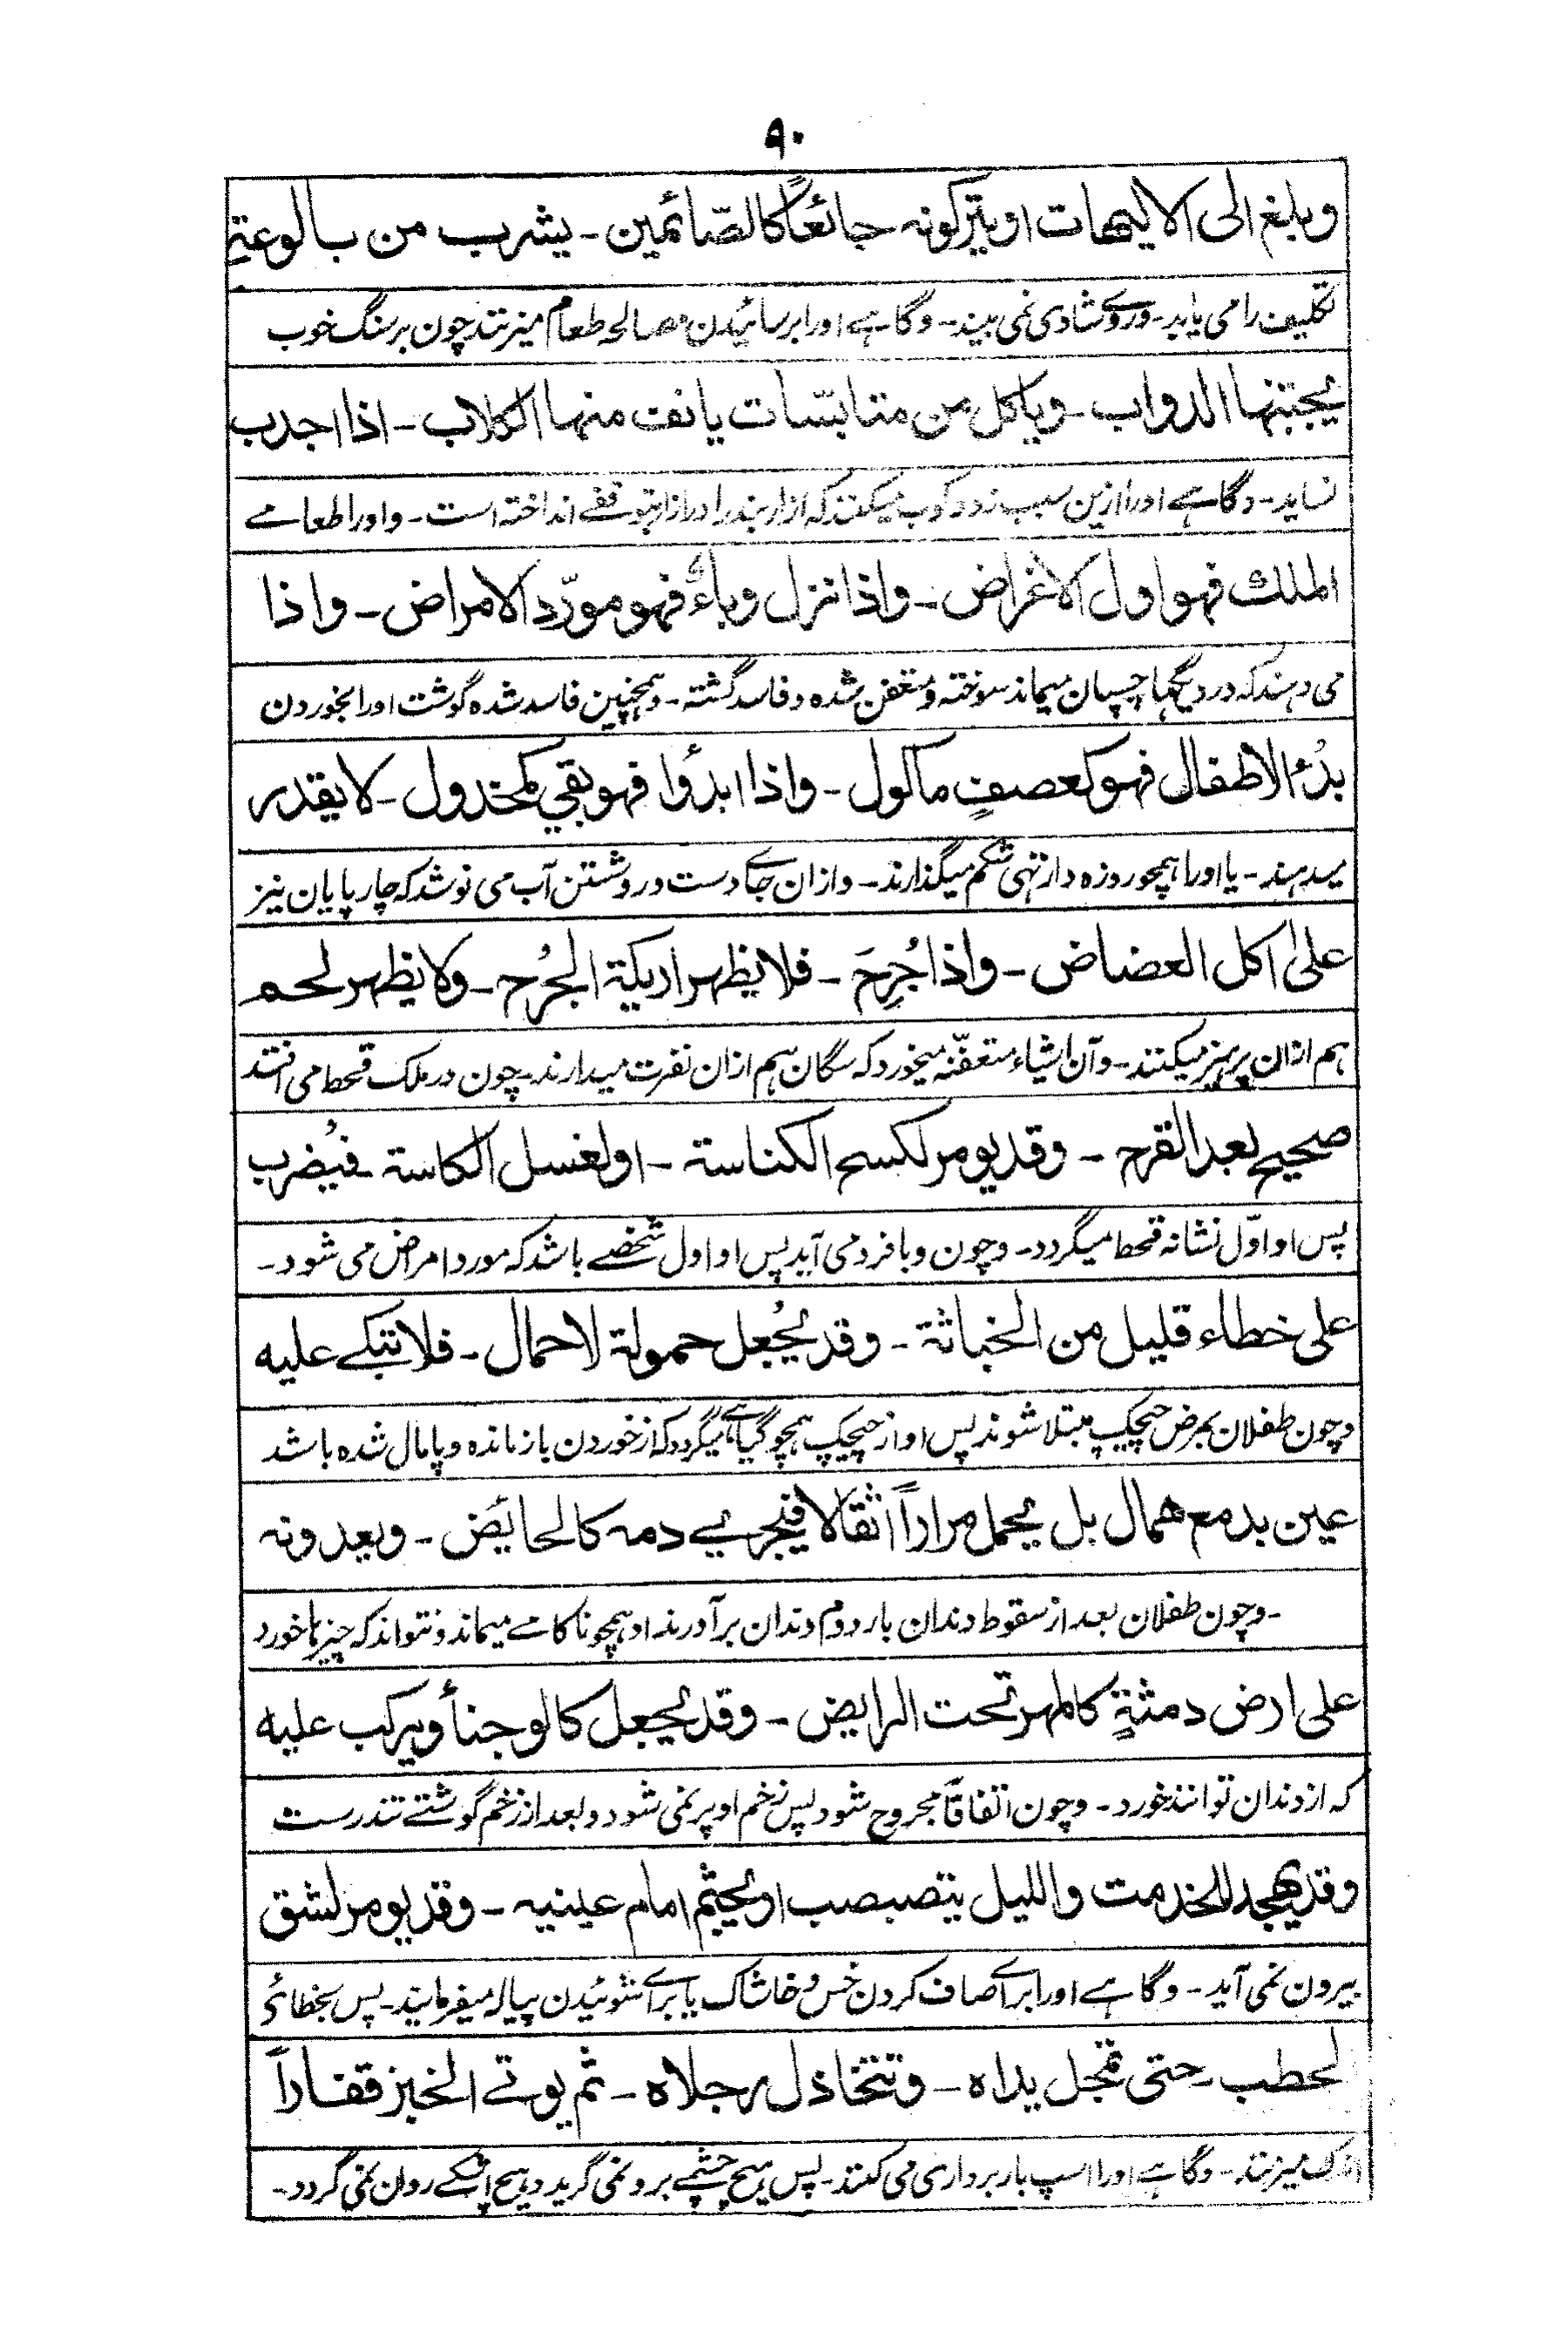 ۹۰
وبلغ الى الایہات اویترکونہ جائعًا کالصّائمین۔ یشرب من بالوعۃٍ
تکلیف را می یابد۔ وروئے شادی نمی بیند۔ وگاہے اورا بر سائیدن مصالحہ طعام میزنند چون بر سنگ خوب
یجتنبہا الدواب۔ ویاکل من متابتّسات یانف منہا الکلاب۔ اذا اجدب
نساید۔ وگاہے اورا ازین سبب زد وکوب میکنند کہ ازار بند را در ازار بتوقفے انداختہ است۔ واورا طعامے
الملک فہو اول الاغراض۔ واذا نزل وباءٌ فہو مورّد الامراض۔ واذا
می دہند کہ در دیگچہا چسپان میماند سوختہ ومتعفن شدہ وفاسد گشتہ۔ وہمچنین فاسد شدہ گوشت اورا بخوردن
بُدْء الاطفال فہو کعصفٍ ماکول۔ واذا ابدؤا فہو بقی کمخذول۔ لا یقدر
میدہند۔ یا اورا ہمچو روزہ دار تہی شکم میگذارند۔ وازان جائے دست ورو شستن آب می نوشد کہ چارپایان نیز
علیٰ اکل العضاض۔ واذا جُرِحَ۔ فلا یظہر اریکۃ الجُرح۔ ولا یظہر لحم
ہم ازان پرہیز میکنند۔ وآن اشیاء متعفّنہ میخورد کہ سگان ہم ازان نفرت میدارند۔ چون در ملک قحط می افتد
صحیح بعد القرح۔ وقد یومر لکسح الکناسۃ۔ او لغسل الکاسۃ۔ فیُضرب
پس او اوّل نشانہ قحط میگردد۔ وچون وبا فرود می آید پس او اول شخصے باشد کہ مورد امراض می شود۔
علی خطاء قلیل من الخباثۃ۔ وقد یُجعل حمولۃ لاحمال۔ فلا تبکے علیہ
وچون طفلان بمرض چیچک مبتلا شوند پس او از چیچک ہمچو گیاہے میگردد کہ از خوردن باز ماندہ وپامال شدہ باشد
عین بدمع ھمال بل یحمل مراراً اثقالا فیجرے دمہ کالحائض۔ ویعدونہ
۔وچون طفلان بعد از سقوط دندان بار دوم دندان برآورند او ہمچو ناکامے میماند ونتواند کہ چیزہا خورد
علی ارض دمثۃٍ کالمہر تحت الرایض۔ وقد یجعل کالوجنأ ویرکب علیہ
کہ از دندان توانند خورد۔ وچون اتفاقًا مجروح شود پس زخم او پر نمی شود وبعد از زخم گوشتے تندرست
وقد یھجد للخدمت واللیل یتصبصب او یجثم امام عینیہ۔ وقد یومر لشق
بیرون نمی آید۔ وگاہے اورا برائے صاف کردن خس وخاشاک یا برائے شوئیدن پیالہ میفرمایند۔ پس بخطائے
لحطب۔ حتی تمجل یداہ۔ وتتخاذل رجلاہ۔ ثم یوتے الخبز قفاراً
اندک میزنند۔ وگاہے اورا اسپ باربرداری می کنند۔ پس ہیچ چشمے برو نمی گرید وہیچ اشکے روان نمی گردد۔